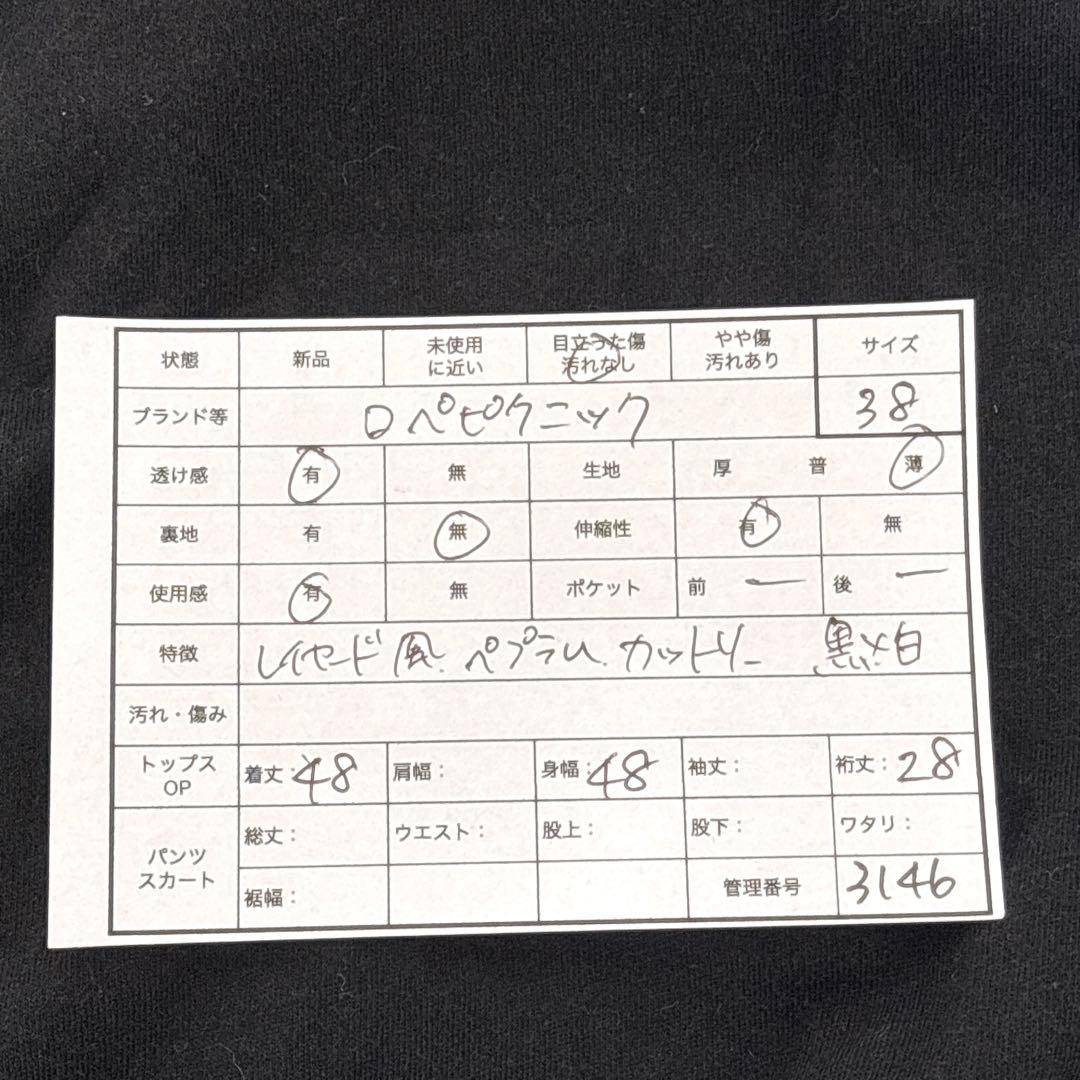 状態 新品 未使用に近い 目立った傷汚れなし やや傷汚れあり サイズ
ブランド等 ロペピクニック 38
透け感 有 無 生地 厚 普 薄
裏地 有 無 伸縮性 有 無
使用感 有 無 ポケット 前 ー 後 ー
特徴 レイヤード風 ペプラム カットソー 黒×白
汚れ・傷み
トップス OP 着丈:48 肩幅: 身幅:48 袖丈: 裄丈:28
パンツ スカート 総丈: ウエスト: 股上: 股下: ワタリ:
裾幅: 管理番号 3146